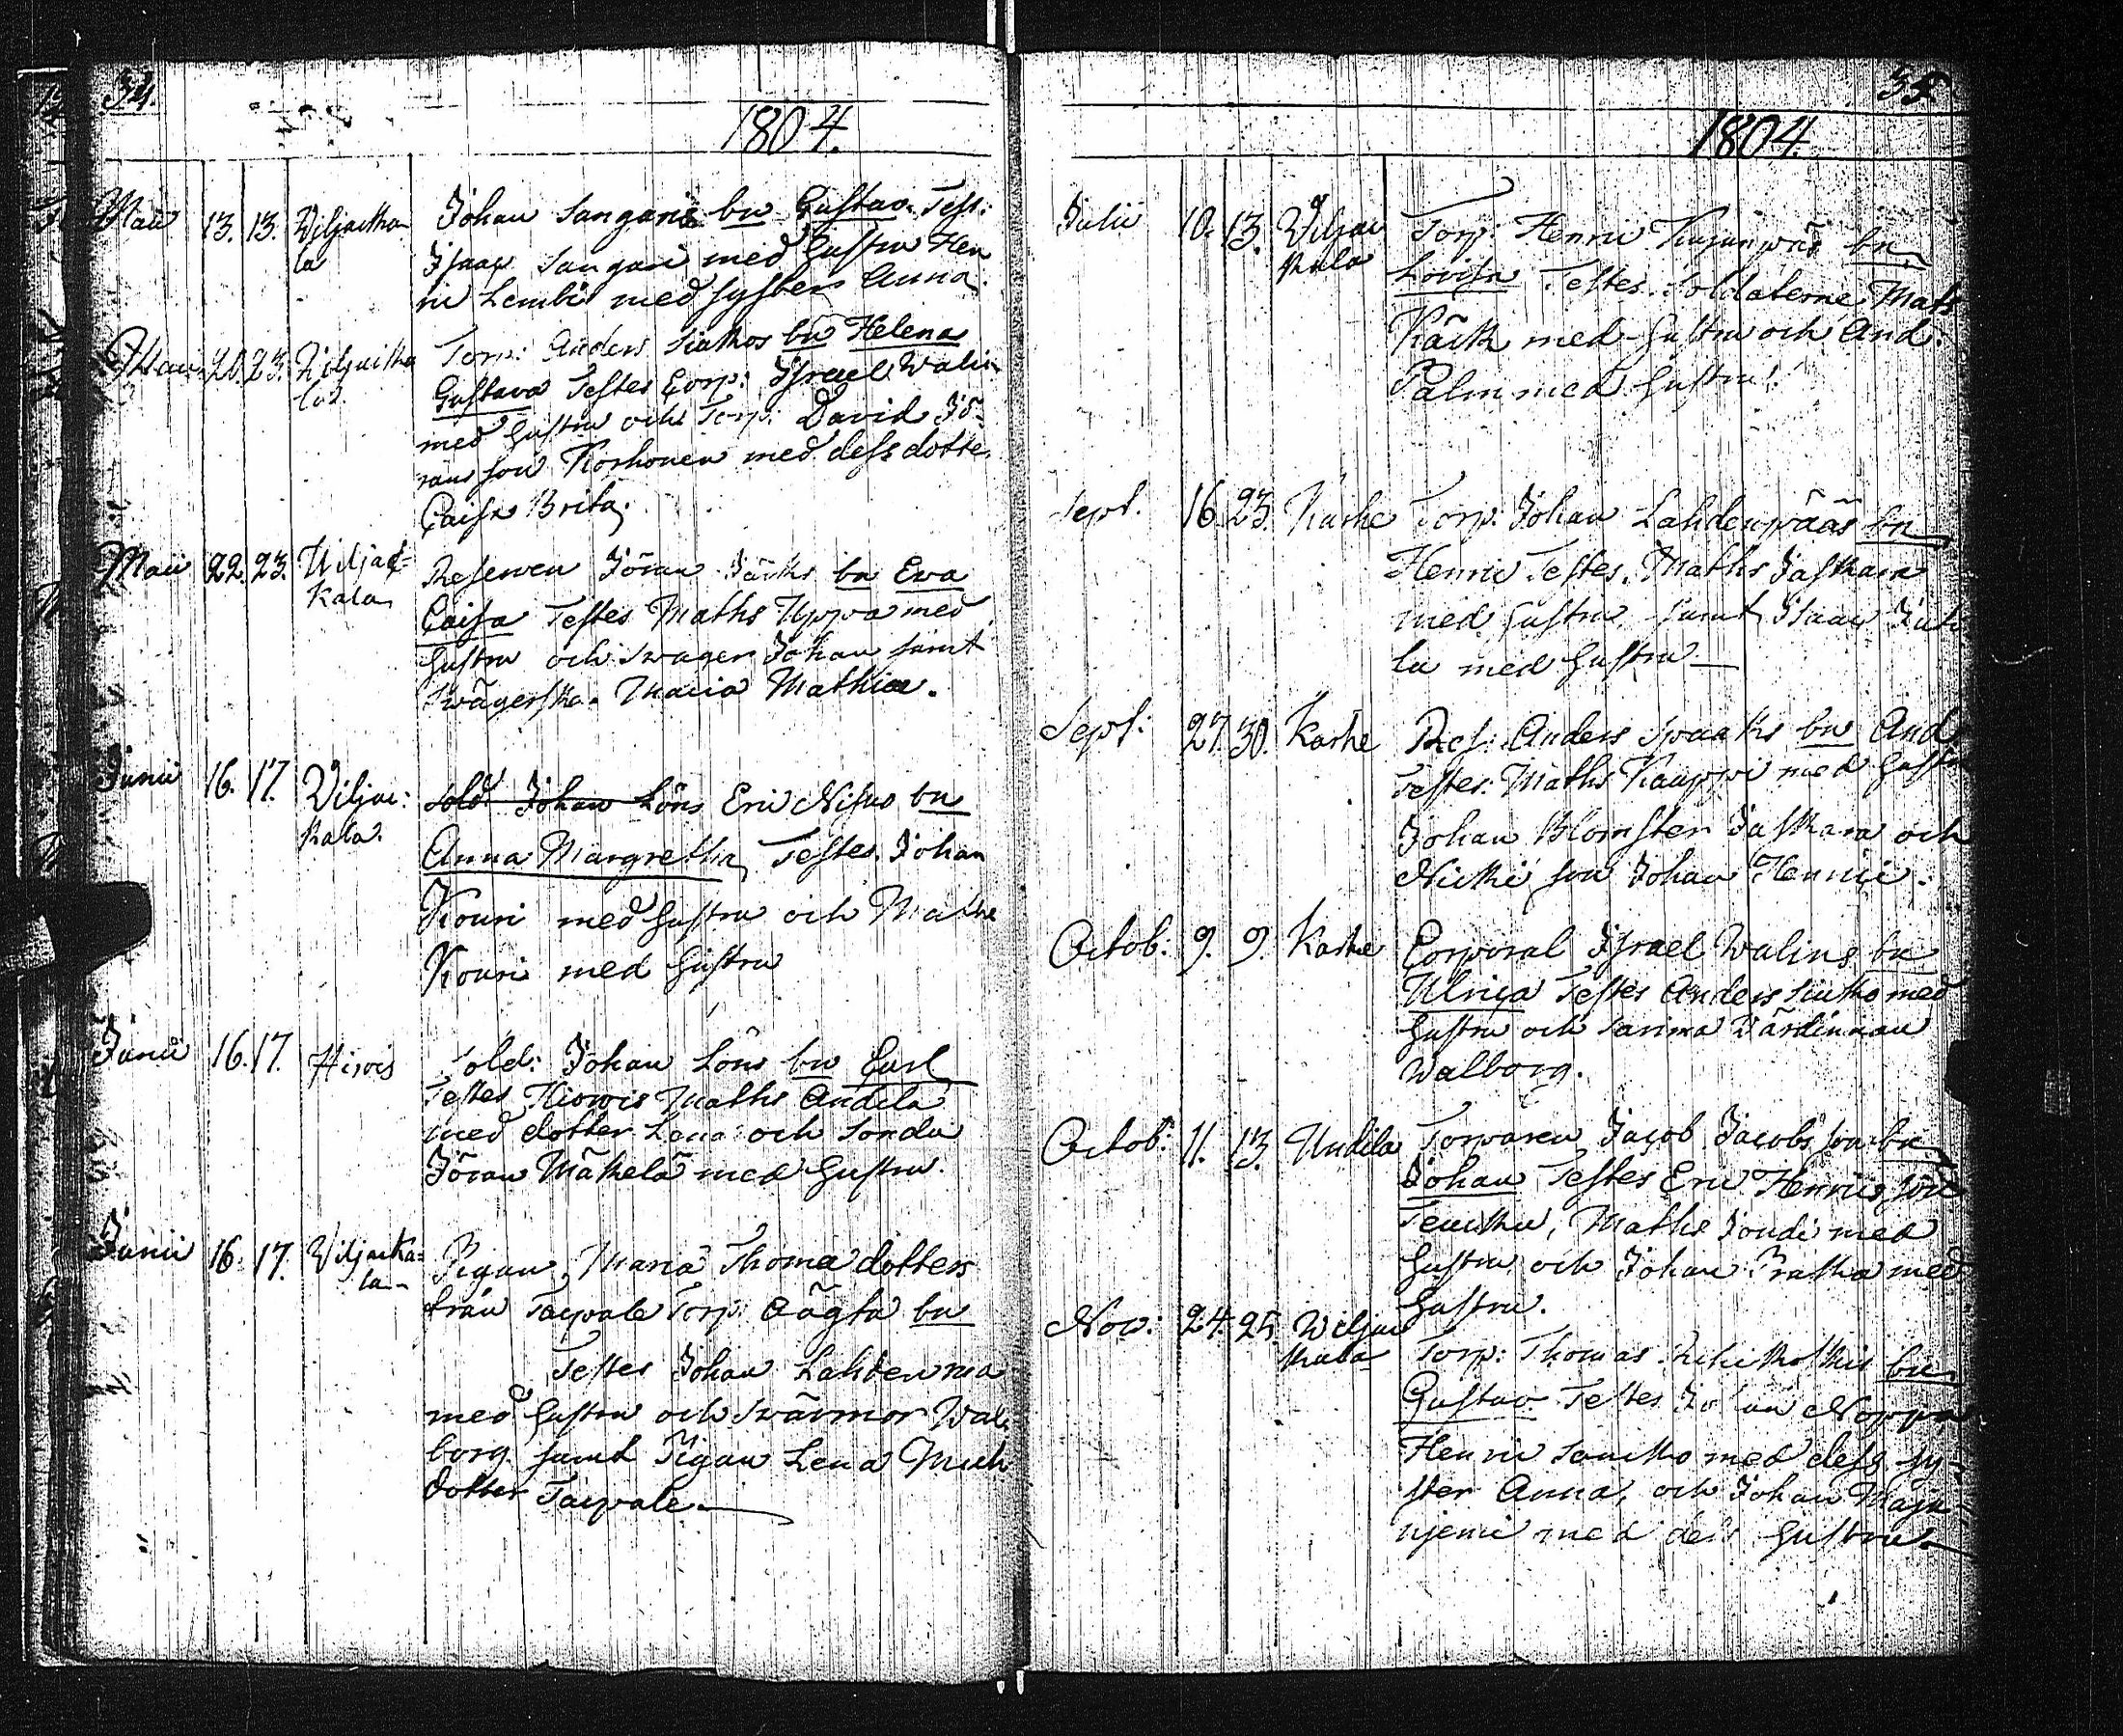 34.
1804.
Maii 13. 13. Viljactka Johan Sangaris bn Gustav. Test:
la Isaac Sangari med Hustru Hen
ric Lembis med syster Anna.
Maii 20. 23. Viljactka Torp: Anders Siukos bn Helena
la. Gustava Testes Corp: Israel Walin
med Hustru och Torp: David Jö-
rans son Korhonen med dess dotter
Caisa Brita.
Maii 22. 23. Viljac- Reserven Jöran Särkis bn Eva
kala Caisa Testes Maths Uppoa med
Hustru och Swager Johan samt
Swägerska Maria Mathiæ.
Junii 16. 17. Viljac: Sold: Johan Löns Eric Nisus bn
kala. Anna Margretha Testes. Johan
Kouri med Hustru och Maths
Kouri med Hustru
Junii 16. 17. Hirvis Sold: Johan Löns bn Carl
Testes Hiovis Maths Andela
med dotter Lena och Sondu
Jöran Mäkelä med Hustru.
Junii 16. 17. Viljacka= Pigan, Maria Thoma dotters
la- från Taipale Torp: Oägta bn
Testes Johan Lahdenma
med Hustru och Swärmor Wal-
borg samt Pigan Lena Mich
dotter Taipale.
35
1804.
Julii 10. 13. Viljac Torp: Henric bn
kala Lovisa Testes. Soldaterne Mats
Käck med Hustru och And:
Palm med Hustru.
Sept. 16. 23. Karhe Torp: Johan Lahdenpääs bn
Henric Testes. Maths Jaskara
med Hustru samt Isaac
la med Hustru
Sept: 27. 30. Karhe Res: Anders Spaaks bn And
Testes: Maths Kauppi med Hustru
Johan Blomster Jaskara och
Nicki son Johan Henrici.
Octob: 9. 9. Karhe Corporal Israel Walins bn
Ulrica Testes Anders Siuko med
Hustru och Samma Värdinnan
Walborg.
Octob: 11. 13. Undila Torparen Jacob Jacobs son bn
Johan Testes Eric Henrics son
Maths Joudi med
Hustru och Johan Praska med
Hustru.
Nov: 24. 25. Wiljac
kala Torp: Thomas bn
Gustav Testes Johan Noppa
Henric Saucko med dess sy-
ster Anna, och Johan Maja-
njemi med dess Hustru.